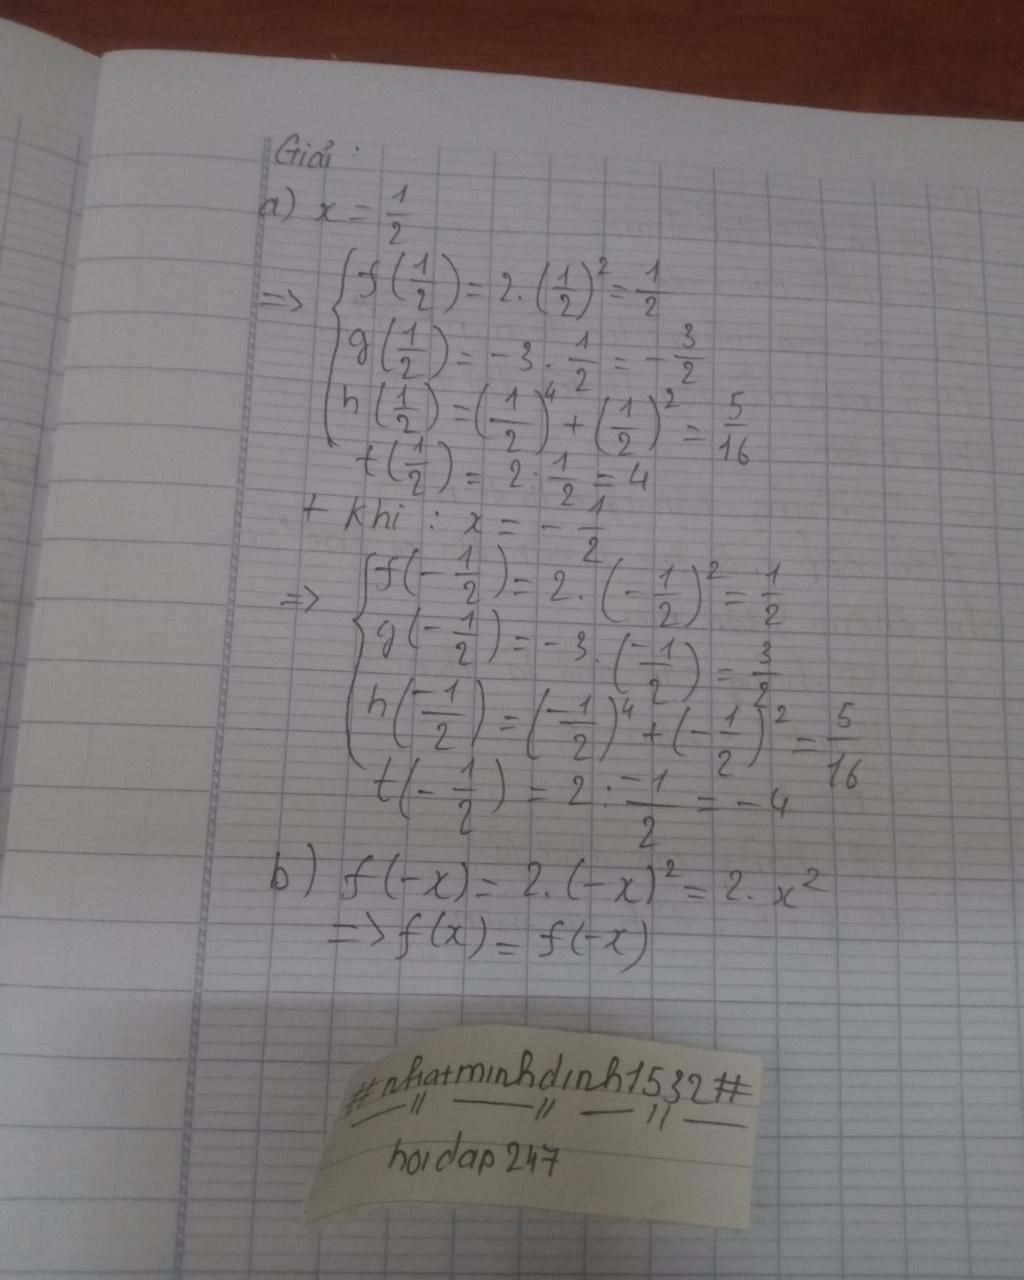 Giải :
a) x = 1/2
=> { f(1/2) = 2.(1/2)² = 1/2
g(1/2) = -3.1/2 = -3/2
h(1/2) = (1/2)⁴ + (1/2)² = 5/16
t(1/2) = 2:1/2 = 4
+ Khi : x = -1/2
=> { f(-1/2) = 2.(-1/2)² = 1/2
g(-1/2) = -3.(-1/2) = 3/2
h(-1/2) = (-1/2)⁴ + (-1/2)² = 5/16
t(-1/2) = 2:-1/2 = -4
b) f(-x) = 2.(-x)² = 2.x²
=> f(x) = f(-x)
#nhatminhdinh1532#
hoidap247